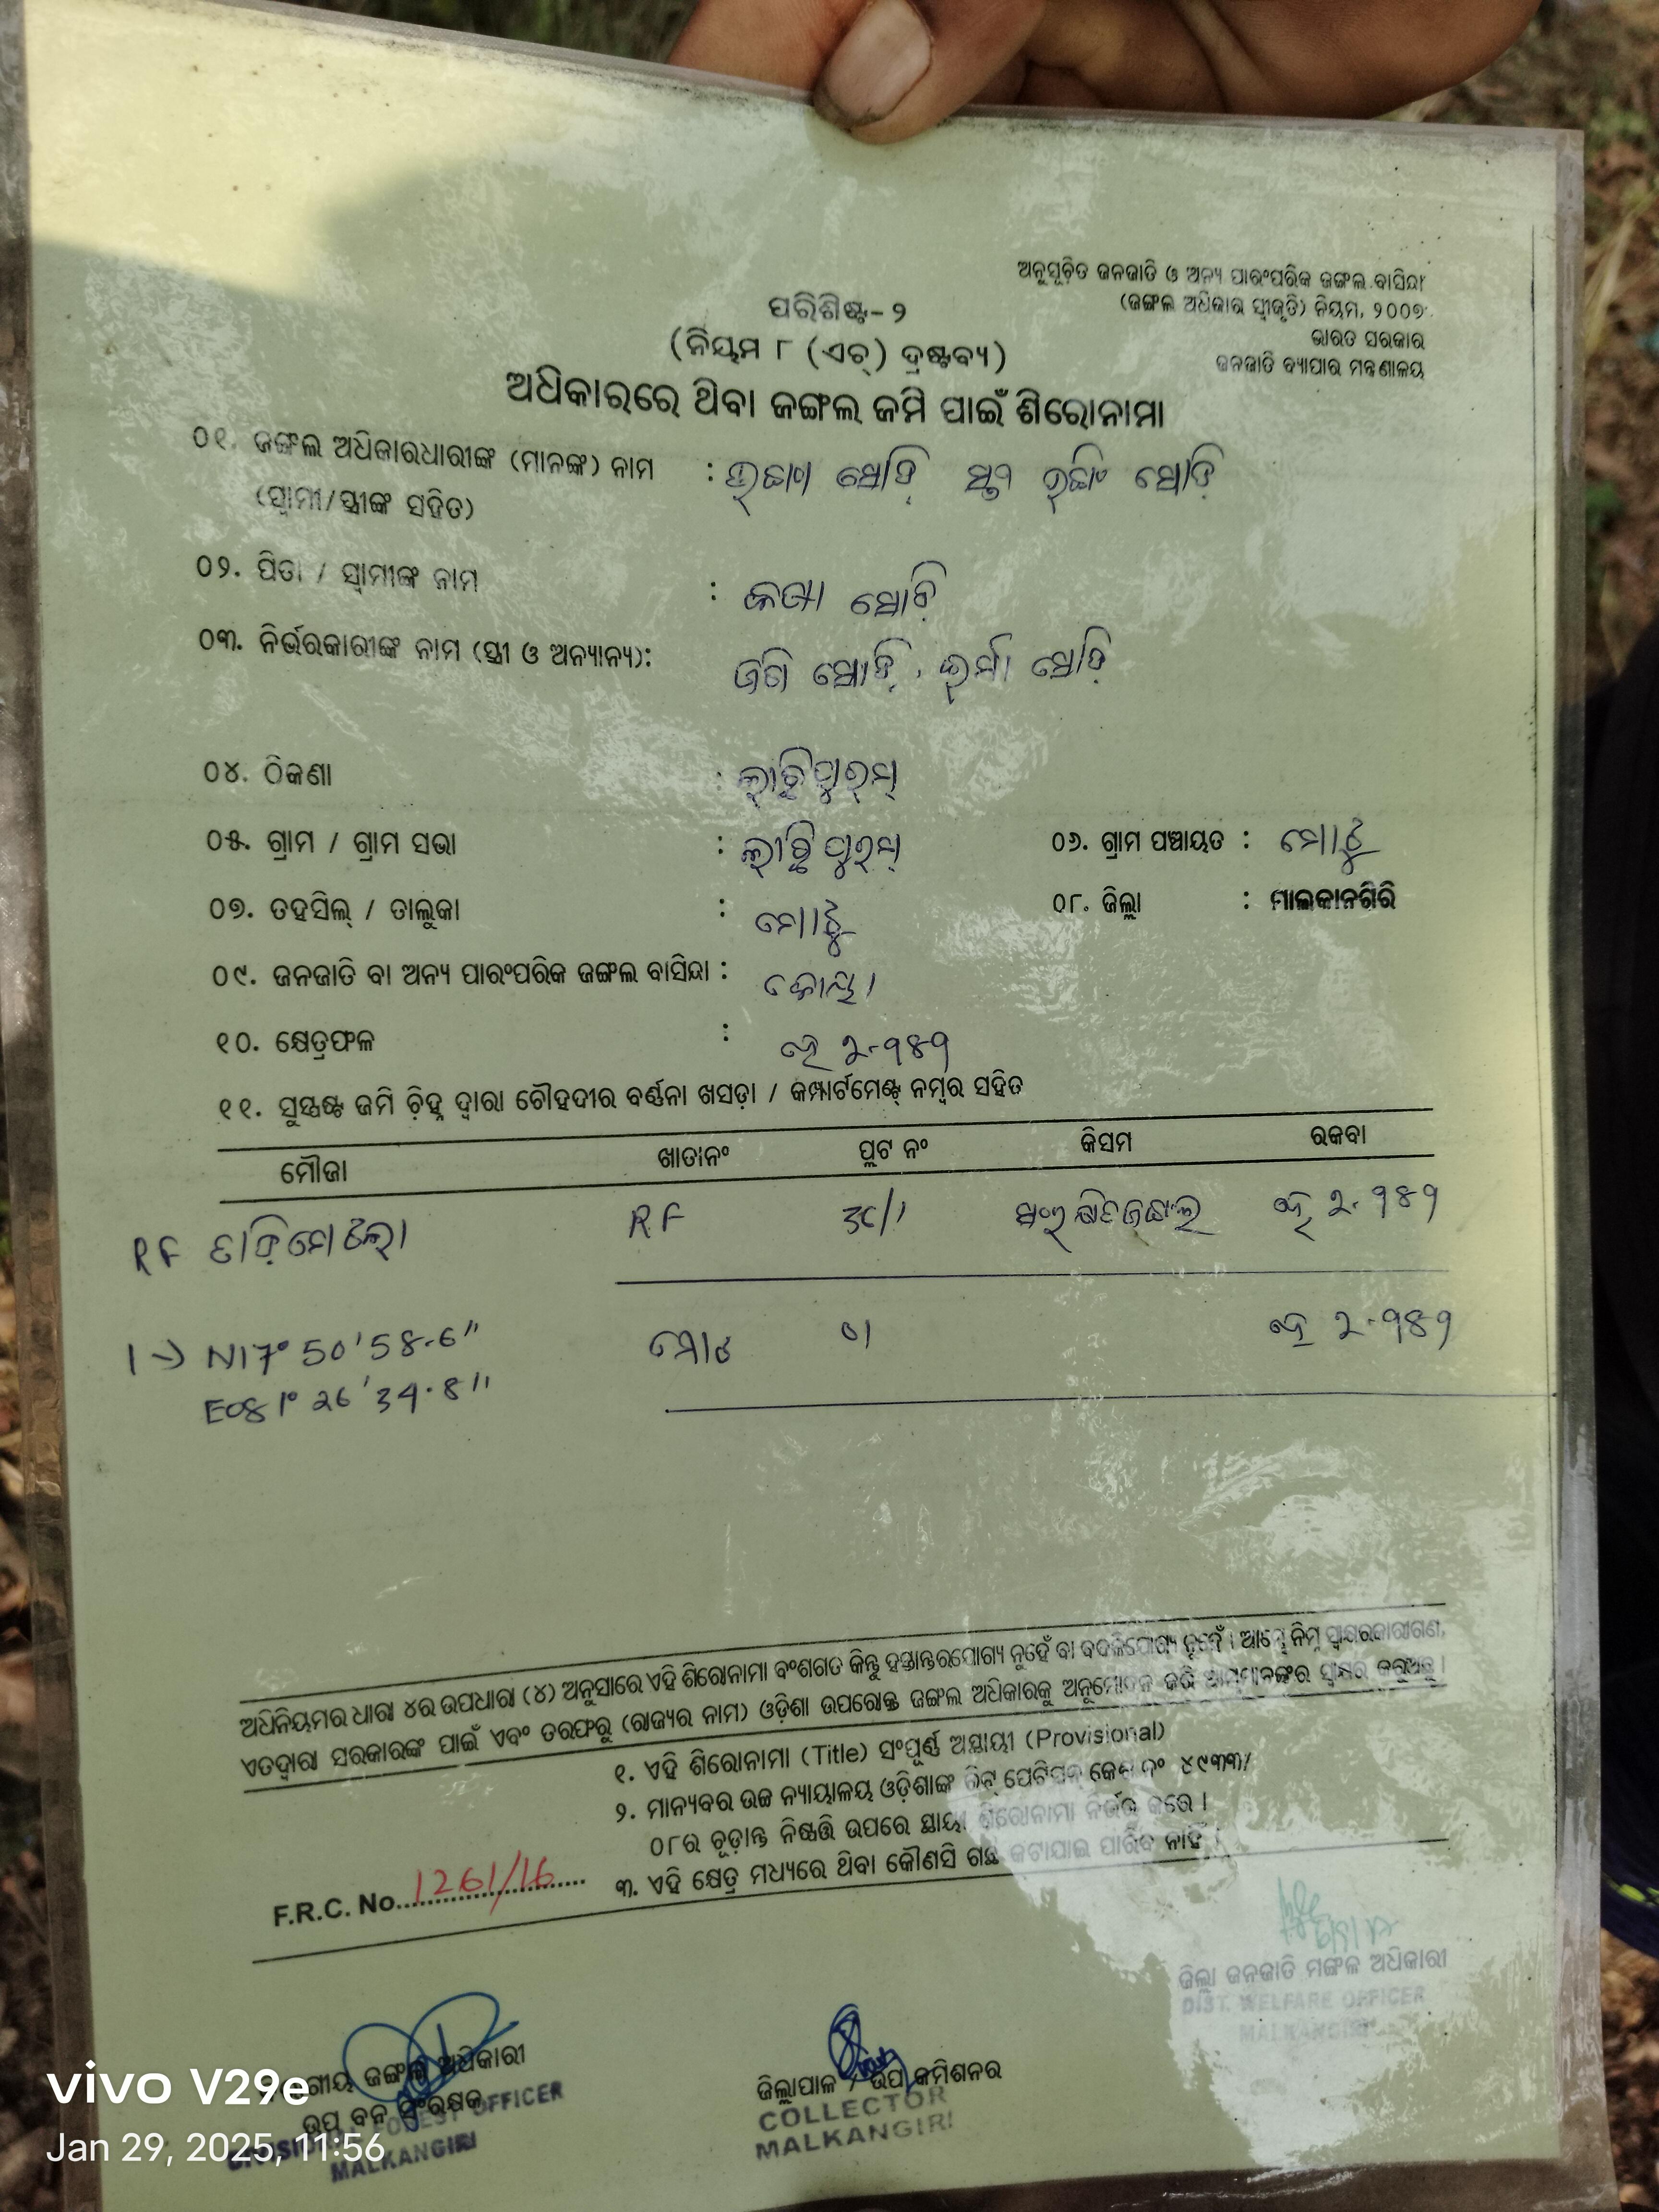 ଅନୁସୂଚିତ ଜନଜାତି ଓ ଅନ୍ୟ ପାରଂପରିକ ଜଙ୍ଗଲ ବାସିନ୍ଦା
(ଜଙ୍ଗଲ ଅଧିକାର ସ୍ୱୀକୃତି) ନିୟମ, ୨୦୦୭
ଭାରତ ସରକାର
ଜନଜାତି ବ୍ୟାପାର ମନ୍ତ୍ରଣାଳୟ
ପରିଶିଷ୍ଟ-୨
(ନିୟମ ୮ (ଏଚ୍) ଦ୍ରଷ୍ଟବ୍ୟ)
ଅଧିକାରରେ ଥିବା ଜଙ୍ଗଲ ଜମି ପାଇଁ ଶିରୋନାମା
୦୧. ଜଙ୍ଗଲ ଅଧିକାରଧାରୀଙ୍କ (ମାନଙ୍କ) ନାମ :
(ସ୍ୱାମୀ/ସ୍ତ୍ରୀଙ୍କ ସହିତ)
୦୨. ପିତା / ସ୍ୱାମୀଙ୍କ ନାମ :
୦୩. ନିର୍ଭରକାରୀଙ୍କ ନାମ (ସ୍ତ୍ରୀ ଓ ଅନ୍ୟାନ୍ୟ):
୦୪. ଠିକଣା :
୦୫. ଗ୍ରାମ / ଗ୍ରାମ ସଭା : ୦୬. ଗ୍ରାମ ପଞ୍ଚାୟତ : ମୋଟୁ
୦୭. ତହସିଲ୍ / ତାଲୁକା : ମୋଟୁ ୦୮. ଜିଲ୍ଲା : ମାଲକାନଗିରି
୦୯. ଜନଜାତି ବା ଅନ୍ୟ ପାରଂପରିକ ଜଙ୍ଗଲ ବାସିନ୍ଦା : କୋୟା
୧୦. କ୍ଷେତ୍ରଫଳ : ହେ ୨.୧୪୧
୧୧. ସୁସ୍ପଷ୍ଟ ଜମି ଚିହ୍ନ ଦ୍ୱାରା ଚୌହଦୀର ବର୍ଣ୍ଣନା ଖସଡ଼ା / କମ୍ପାର୍ଟମେଣ୍ଟ୍ ନମ୍ବର ସହିତ
ମୌଜା ଖାତାନଂ ପ୍ଲଟ ନଂ କିସମ ରକବା
RF RF ହେ ୨.୧୪୧
1→ N17° 50'58.6" ମୋଟ ୦୧ ହେ ୨.୧୪୧
E081° 26'34.8"
ଅଧିନିୟମର ଧାରା ୪ର ଉପଧାରା (୪) ଅନୁସାରେ ଏହି ଶିରୋନାମା ବଂଶଗତ କିନ୍ତୁ ହସ୍ତାନ୍ତରଯୋଗ୍ୟ ନୁହେଁ ବା ବଦଳିଯୋଗ୍ୟ ନୁହେଁ । ଆମ୍ଭେ ନିମ୍ନ ସ୍ୱାକ୍ଷରକାରୀଗଣ,
ଏତଦ୍ୱାରା ସରକାରଙ୍କ ପାଇଁ ଏବଂ ତରଫରୁ (ରାଜ୍ୟର ନାମ) ଓଡ଼ିଶା ଉପରୋକ୍ତ ଜଙ୍ଗଲ ଅଧିକାରକୁ ଅନୁମୋଦନ କରି ଆମ୍ଭମାନଙ୍କର ସ୍ୱାକ୍ଷର କରୁଅଛୁ ।
୧. ଏହି ଶିରୋନାମା (Title) ସଂପୂର୍ଣ୍ଣ ଅସ୍ଥାୟୀ (Provisional)
୨. ମାନ୍ୟବର ଉଚ୍ଚ ନ୍ୟାୟାଳୟ ଓଡ଼ିଶାଙ୍କ ରିଟ୍ ପେଟିସନ କେଶ ନଂ ୪୯୩୩/
୦୮ର ଚୂଡ଼ାନ୍ତ ନିଷ୍ପତ୍ତି ଉପରେ ସ୍ଥାୟୀ ଶିରୋନାମା ନିର୍ଭର କରେ ।
୩. ଏହି କ୍ଷେତ୍ର ମଧ୍ୟରେ ଥିବା କୌଣସି ଗଛ କଟାଯାଇ ପାରିବ ନାହିଁ ।
F.R.C. No. 1261/16
ଜିଲ୍ଲା ଜନଜାତି ମଙ୍ଗଳ ଅଧିକାରୀ
DIST. WELFARE OFFICER
MALKANGIRI
ଜଙ୍ଗଲ ଅଧିକାରୀ
ଉପ ବନ ସଂରକ୍ଷକ
FOREST OFFICER
MALKANGIRI
ଜିଲ୍ଲାପାଳ / ଉପ କମିଶନର
COLLECTOR
MALKANGIRI
vivo V29e
Jan 29, 2025, 11:56